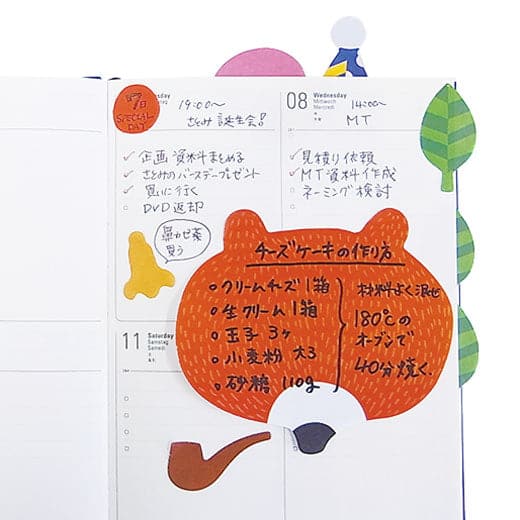 7日
SPECIAL DAY
19:00〜
さとみ誕生会!
08 Wednesday
Mittwoch
Mercredi
水
14:00〜
MT
企画資料まとめる
さとみのバースデープレゼント
買いに行く
DVD返却
見積り依頼
MT資料作成
ネーミング検討
鼻かぜ薬
買う
チーズケーキの作り方
クリームチーズ1箱
生クリーム1箱
玉子3ヶ
小麦粉 大3
砂糖 110g
材料よく混ぜ
180℃の
オーブンで
40分焼く.
11 Saturday
Samstag
Samedi
土